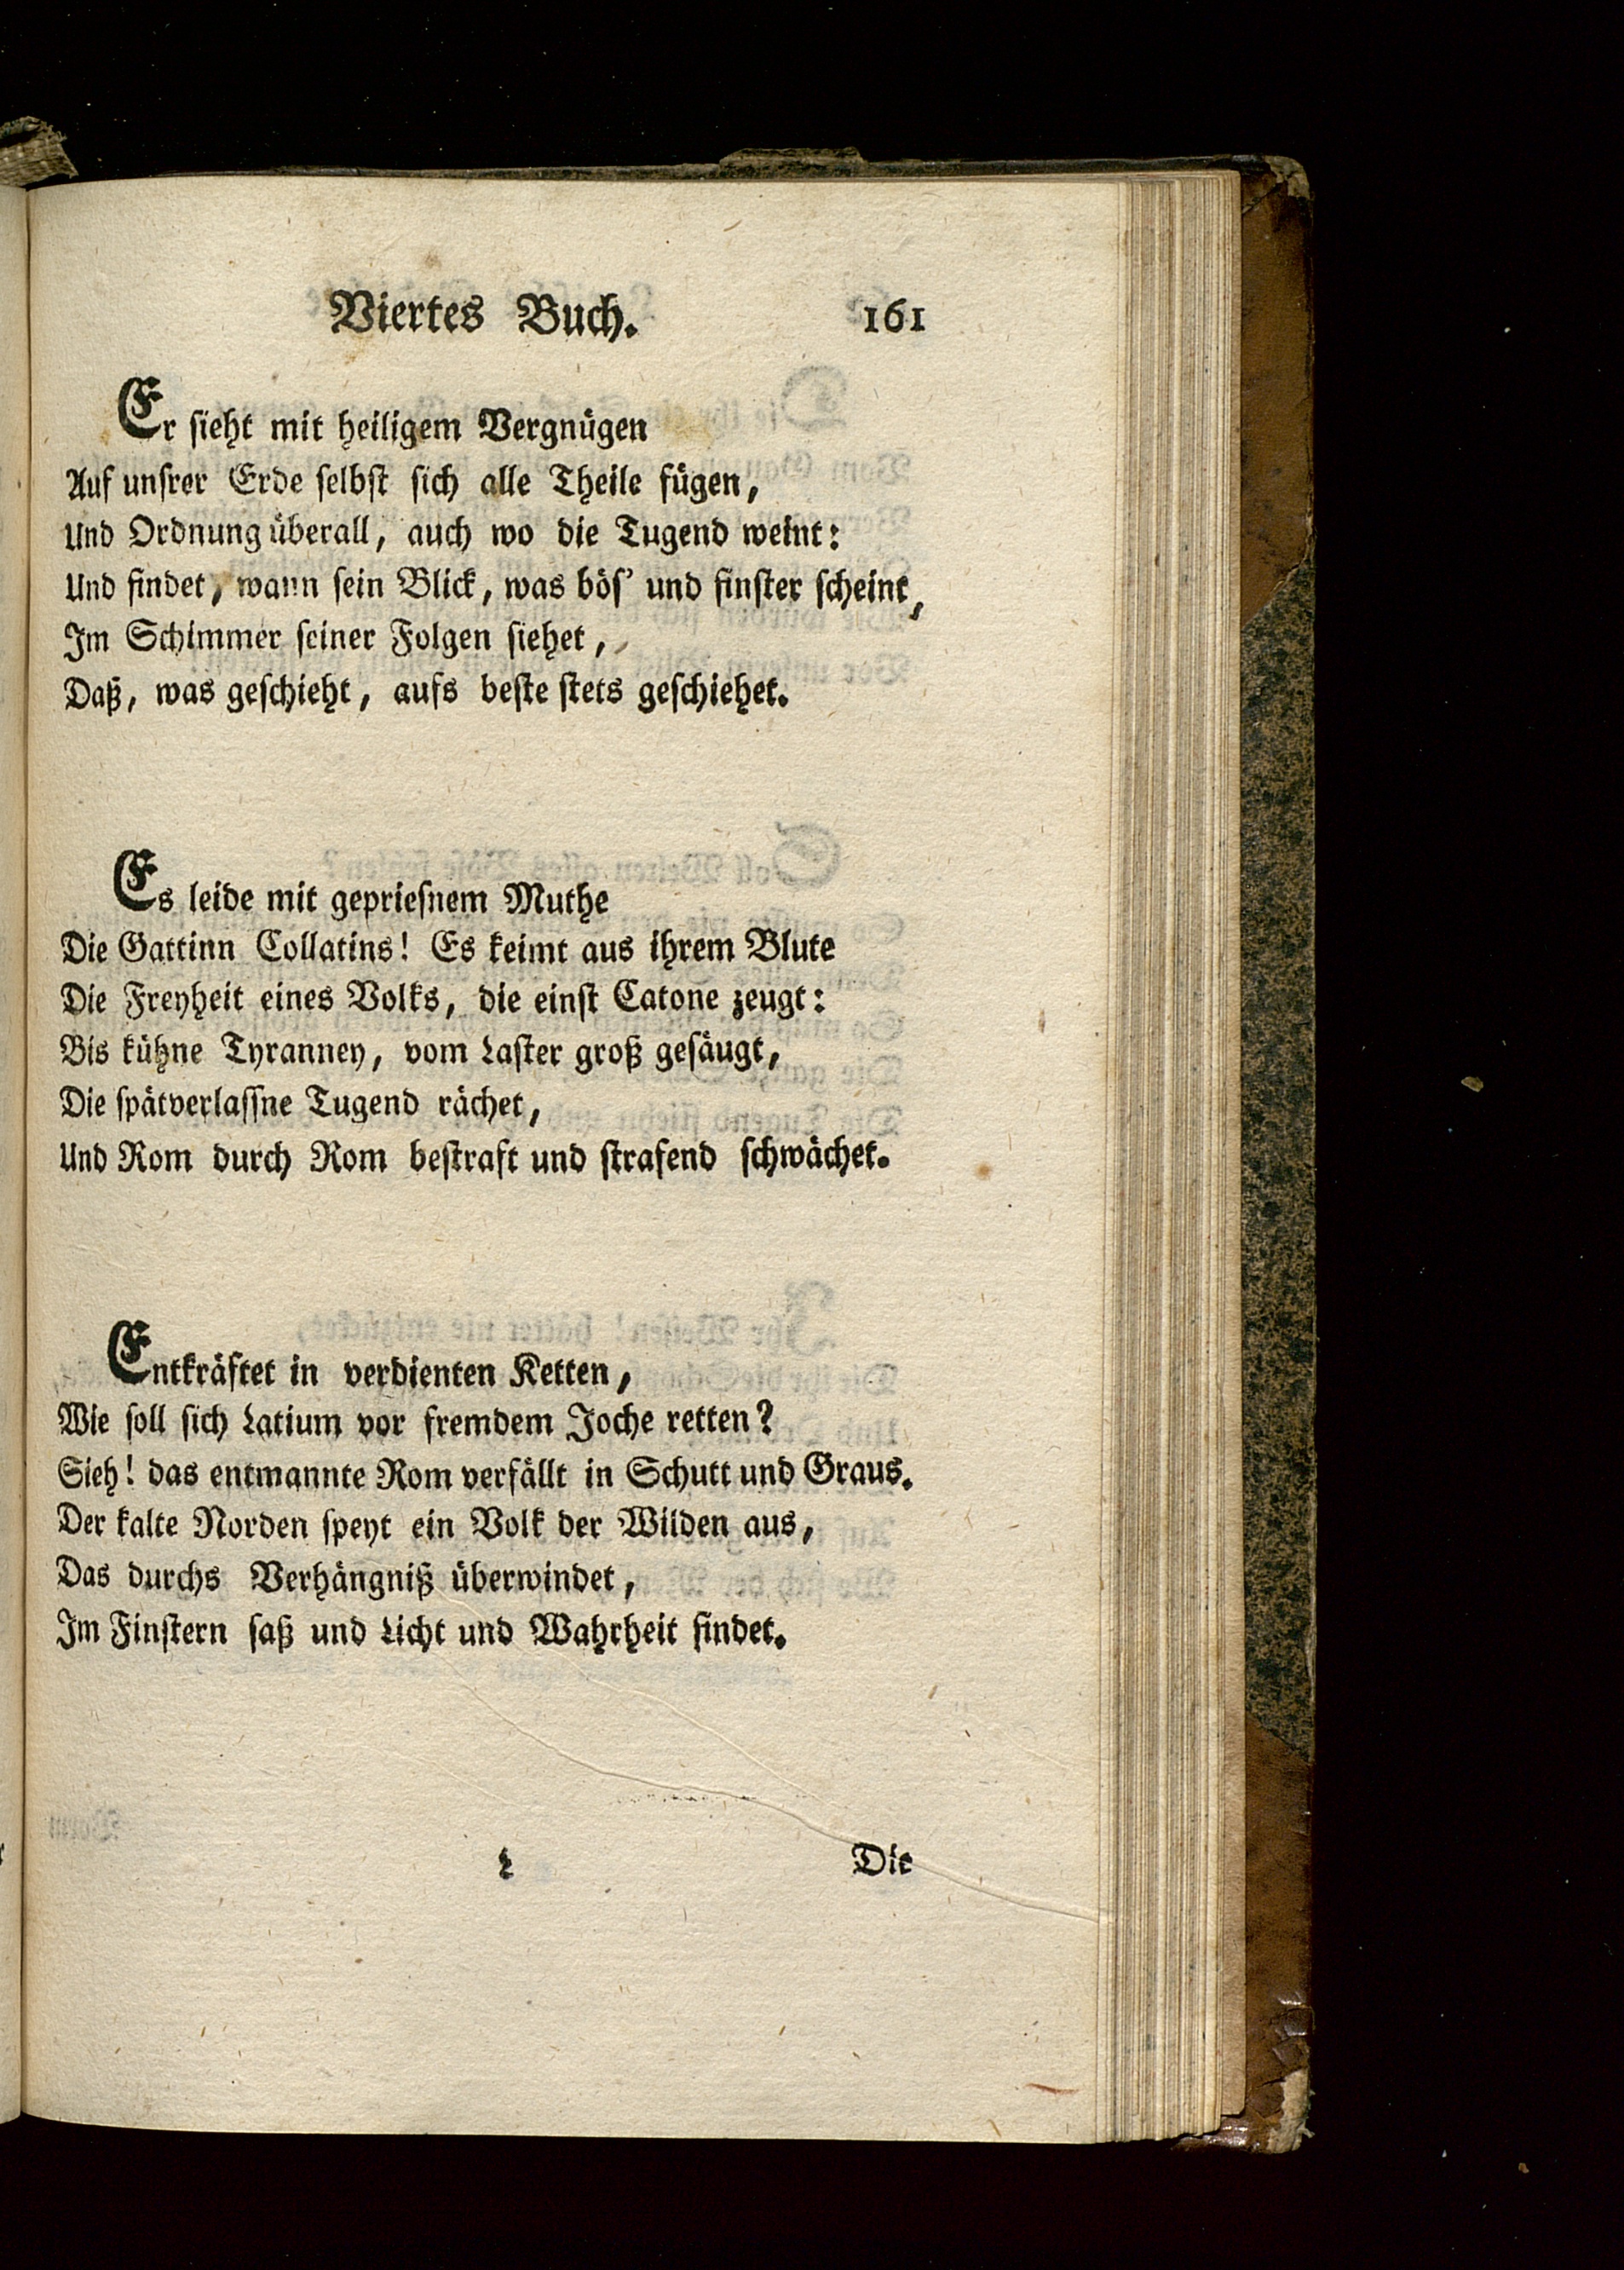 Viertes Buch. 161
Er sieht mit heiligem Vergnügen
Auf unsrer Erde selbst sich alle Theile fügen,
Und Ordnung überall, auch wo die Tugend weint:
Und findet, wann sein Blick, was bös' und finster scheint,
Im Schimmer seiner Folgen siehet,
Daß, was geschieht, aufs beste stets geschiehet.
Es leide mit gepriesnem Muthe
Die Gattinn Collatins! Es keimt aus ihrem Blute
Die Freyheit eines Volks, die einst Catone zeugt:
Bis kühne Tyranney, vom Laster groß gesäugt,
Die spätverlassne Tugend rächet,
Und Rom durch Rom bestraft und strafend schwächet.
Entkräftet in verdienten Ketten,
Wie soll sich Latium vor fremdem Joche retten?
Sieh! das entmannte Rom verfällt in Schutt und Graus.
Der kalte Norden speyt ein Volk der Wilden aus,
Das durchs Verhängniß überwindet,
Im Finstern saß und Licht und Wahrheit findet.
L Die